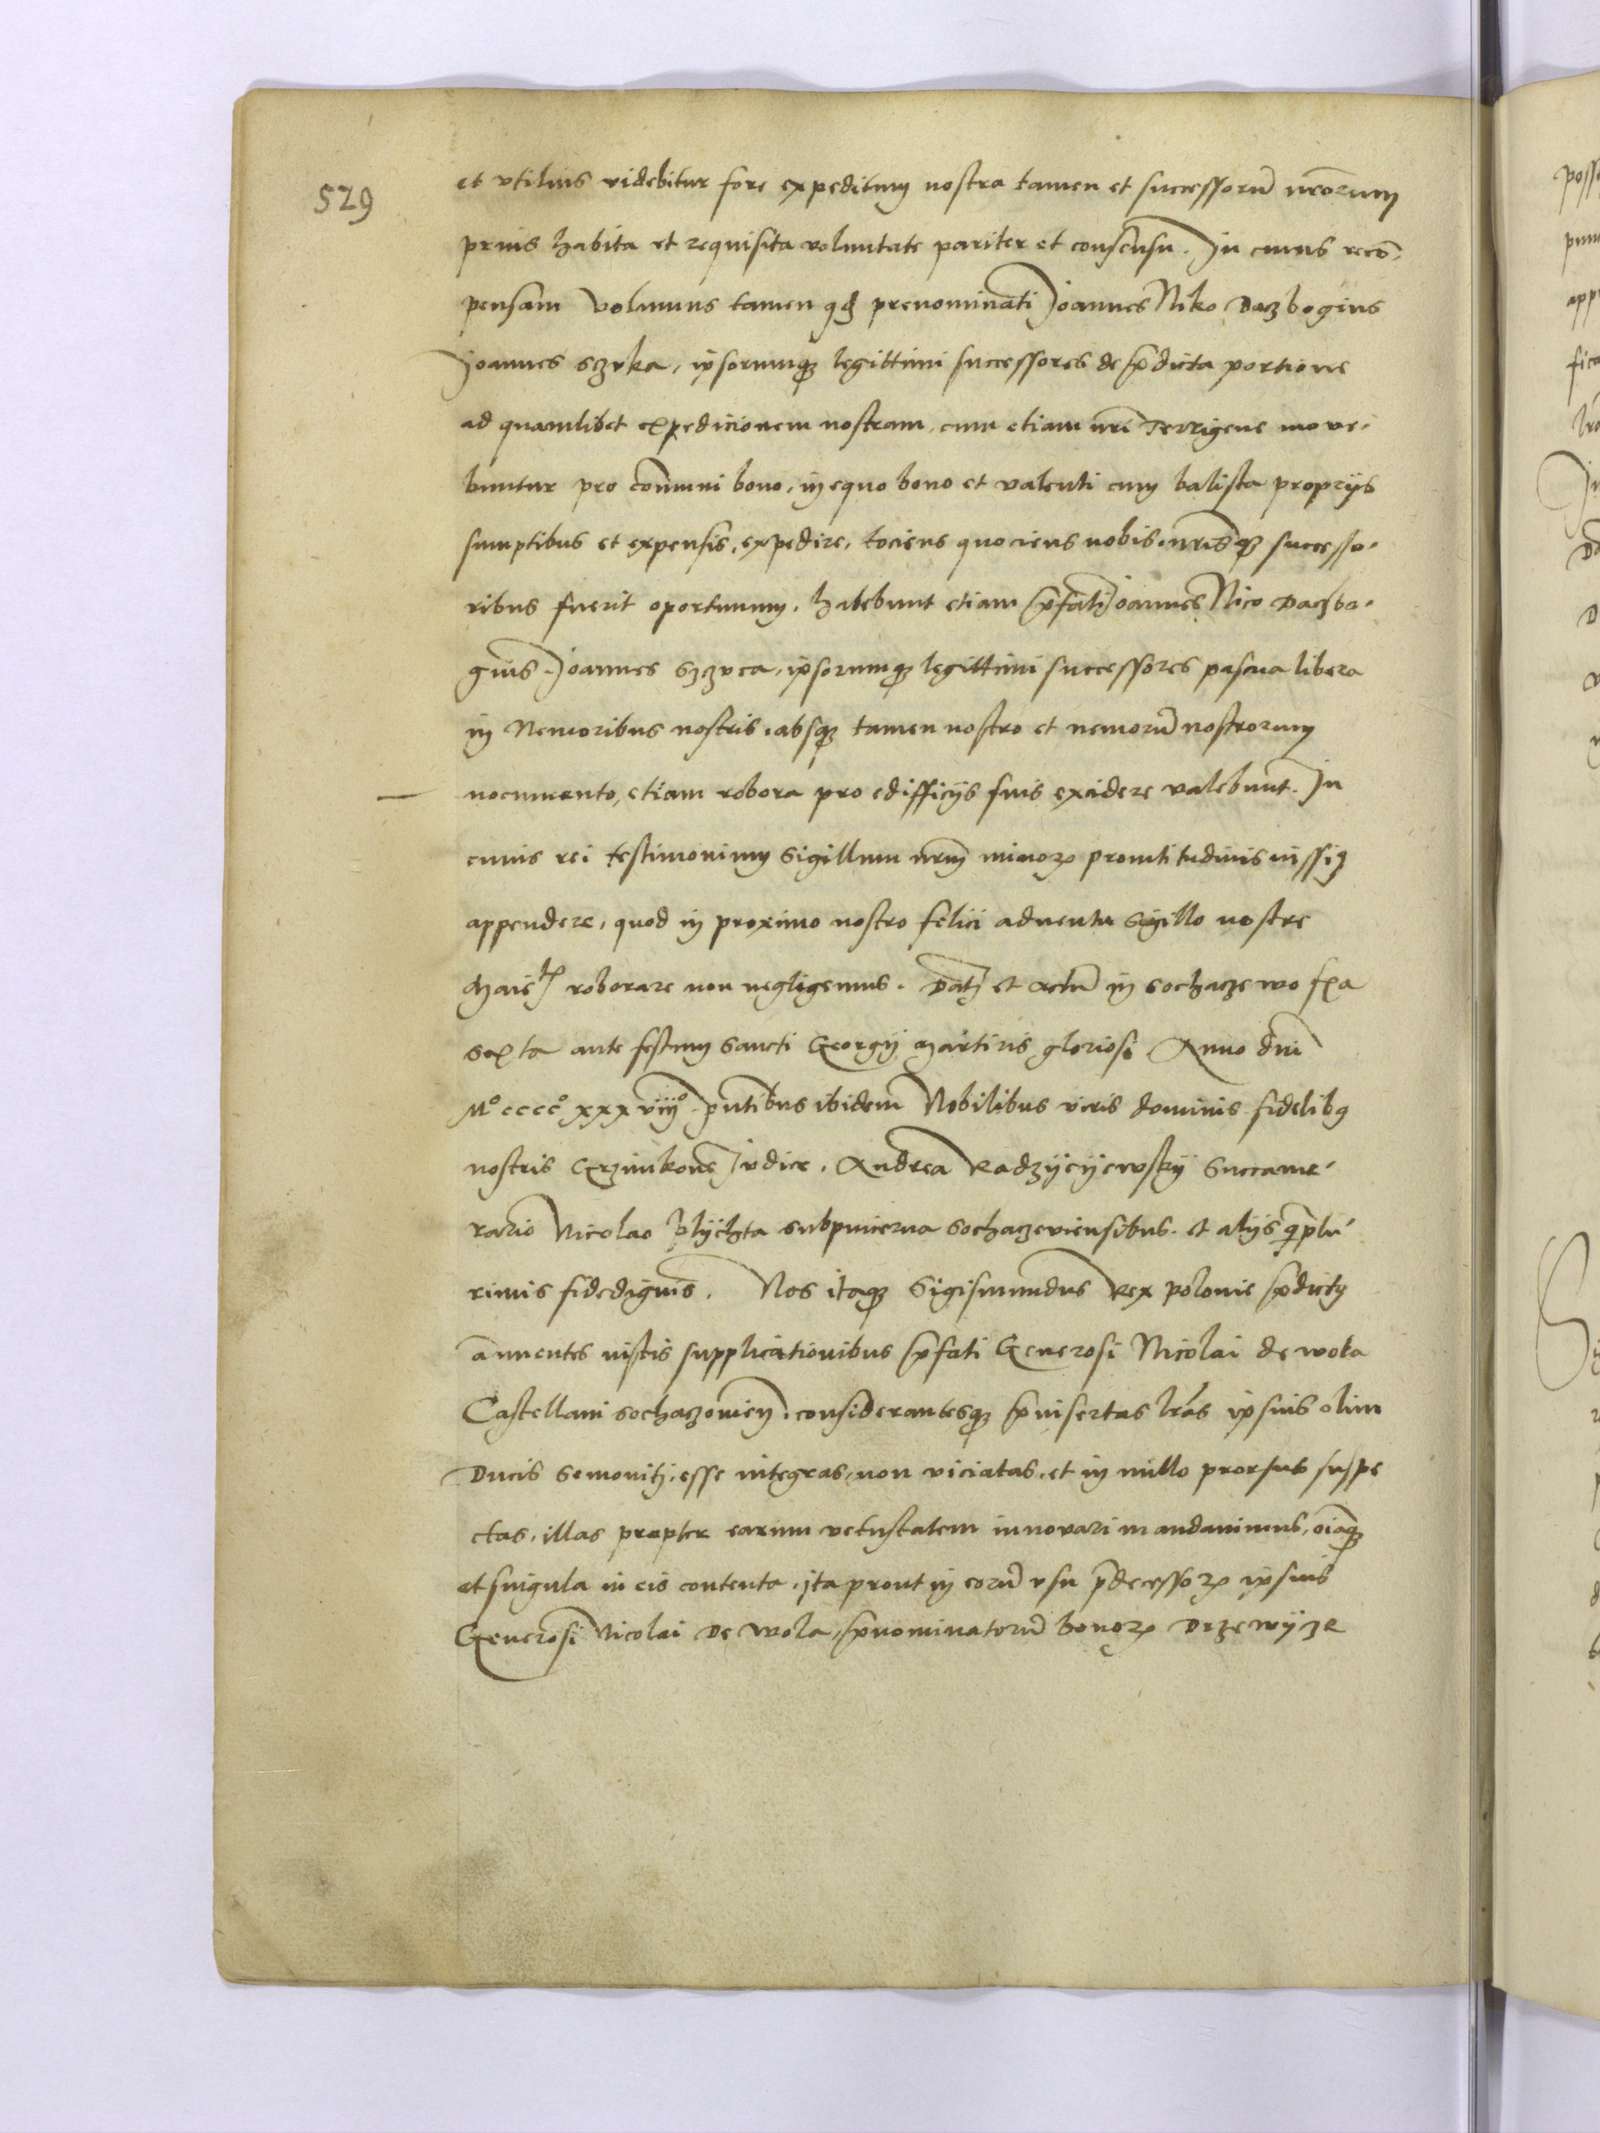 529
et vtilius videbitur fore expeditum nostra tamen et successorũ nr̃orum
prius habita et requisita voluntate pariter et consensu. In cuius recõ-
pensam Volumus tamen qđ prenominati Joannes Niko Daczbogius
Joannes Sczvka, ipsorumqȝ legittimi successores de p̃dicta portione
ad quamlibet expedicionem nostram, cum etiam nr̃i Terrigene move-
buntur pro cõmuni bono, in equo bono et valenti cum balista proprijs
sumptibus et expensis, expedire, tociens quociens nobis, nr̃isqȝ successo-
ribus fuerit oportunum. habebunt etiam p̃fati Joannes Nico Daczbo-
gius. Joannes Sczvca, ipsorumqȝ legittimi successores pascua libera
in Nemoribus nostris, absqȝ tamen nostro et nemorũ nostrorum
nocumento, etiam robora pro edifficijs suis excidere valebunt. In
cuius rei testimonium Sigillum nr̃um minorꝝ promtitudinis iussimus
appendere, quod in proximo nostro felici aduentu Sigillo nostre
Maiestatis roborare non negligemus. Datum et Actũ in Sochaczewo fr̃ia
sexta ante festum Sancti Georgij Martiris gloriosi Anno dni
Mº ccccº xxx viijº. pñtibus ibidem Nobilibus viris dominis fidelibꝫ
nostris Grzimkone Jvdice. Andrea Radzijeijewskij Succame-
rario Nicolao Plijchta subpincerna Sochaczeviensibus. et alijs q̃plu-
rimis fidedignis. Nos itaqȝ Sigismundus Rex polonie p̃dictus
annuentes iustis supplicationibus p̃fati Generosi Nicolai de wola
Castellani Sochaczouien. considerantesqȝ p̃insertas lr̃as ipsius olim
Ducis Semoviti, esse integras, non viciatas, et in nullo prorsus suspe
ctas, illas propter earum vetustatem innovari mandauimus, oĩaqȝ
et singula in eis contenta, jta prout in eorũ vsu p̃decessorꝝ ipsius
Generosi Nicolai De Wola, p̃nominatorũ bonorꝝ Drzewijcze